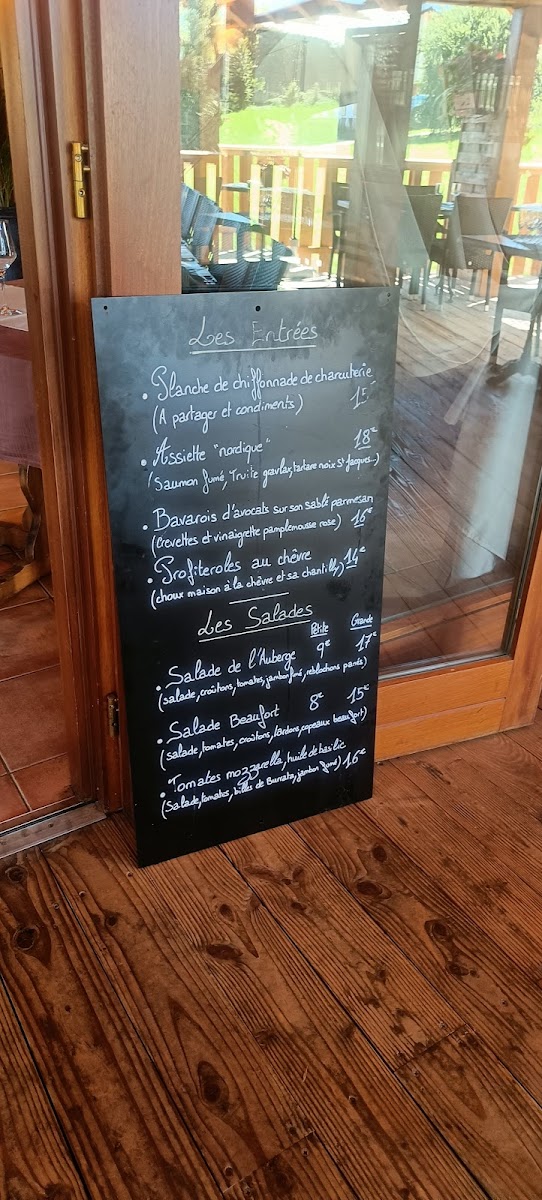 Les Entrées
• Planche de chiffonnade de charcuterie
(A partager et condiments)
• Assiette "nordique" 18€
(Saumon fumé, Truite gravlax, tartare noix St Jacques...)
• Bavarois d'avocats sur son sablé parmesan
(Crevettes et vinaigrette pamplemousse rose) 16€
• Profiteroles au chèvre
(choux maison à la chèvre et sa chantilly) 14€
Les Salades
Petite Grande
• Salade de l'Auberge 9€ 17€
(salade, croûtons, tomates, jambon fumé, reblochons panés)
• Salade Beaufort 8€ 15€
(salade, tomates, croûtons, lardons, copeaux beaufort)
• Tomates mozzarella, huile de basilic
(Salade, tomates, billes de Burrata, jambon fumé) 16€